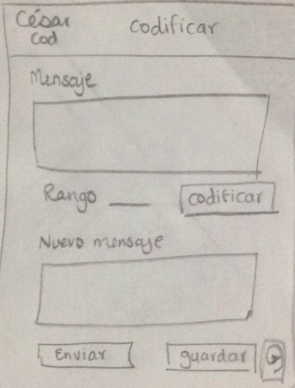 César codificar
Cod
Mensaje
Rango codificar
Nuevo mensaje
Enviar guardar